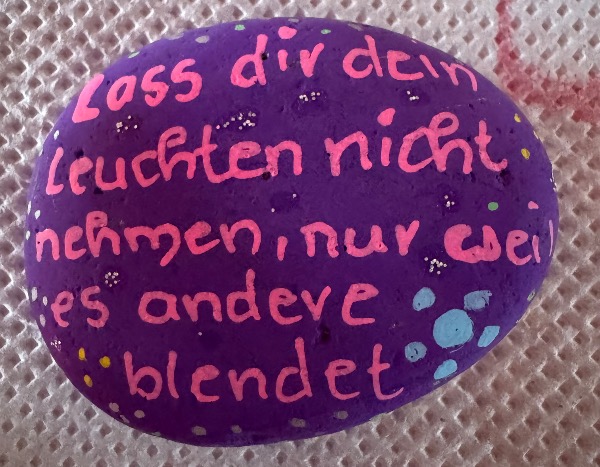 Lass dir dein
Leuchten nicht
nehmen, nur weil
es andere
blendet